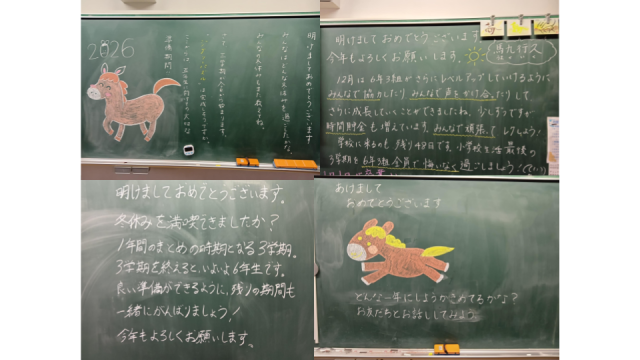 2026
明けましておめでとうございます
みんなはどんな冬休みを過ごしたかな。
みんなの冬休みもまた教えてね。
準備期間
明けましておめでとうございます
今年もよろしくお願いします。
12月は6年3組がさらにレベルアップしていけるように
みんなで協力したり みんなで声をかけ合ったりして
さらに成長していくことができましたね。少しずつですが
時間貯金も増えています。みんなで頑張って
学校に来るのも残り48日です。小学校生活最後の
3学期を6年3組全員で悔いなく過ごしましょう!
明けましておめでとうございます。
冬休みを満喫できましたか?
1年間のまとめの時期となる3学期。
3学期を終えると、いよいよ6年生です。
良い準備ができるように、残りの期間も
一緒にがんばりましょう!
今年もよろしくお願いします。
あけまして
おめでとうございます
どんな一年にしようかきめてるかな?
お友だちとお話ししてみよう